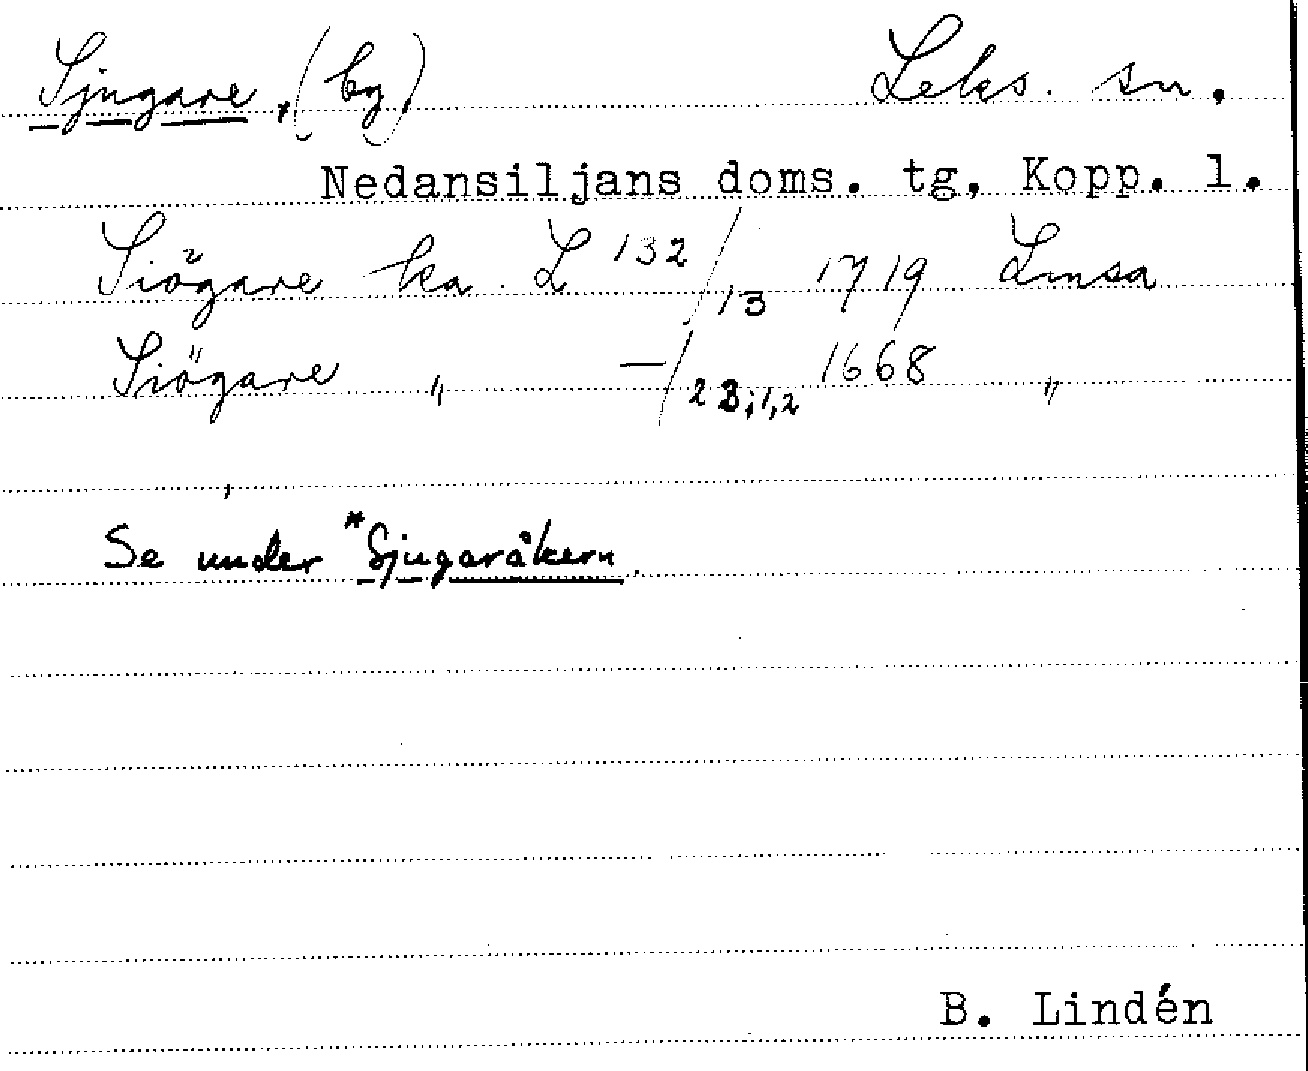 Sjugare, (by) Leks. sn.
Nedansiljans doms. tg, Kopp. l.
Siögare ka. L 132/13 1719 Lmsa
Siögare " —/2 B;1,2 1668 "
Se under *Sjugaråkern.
B. Lindén